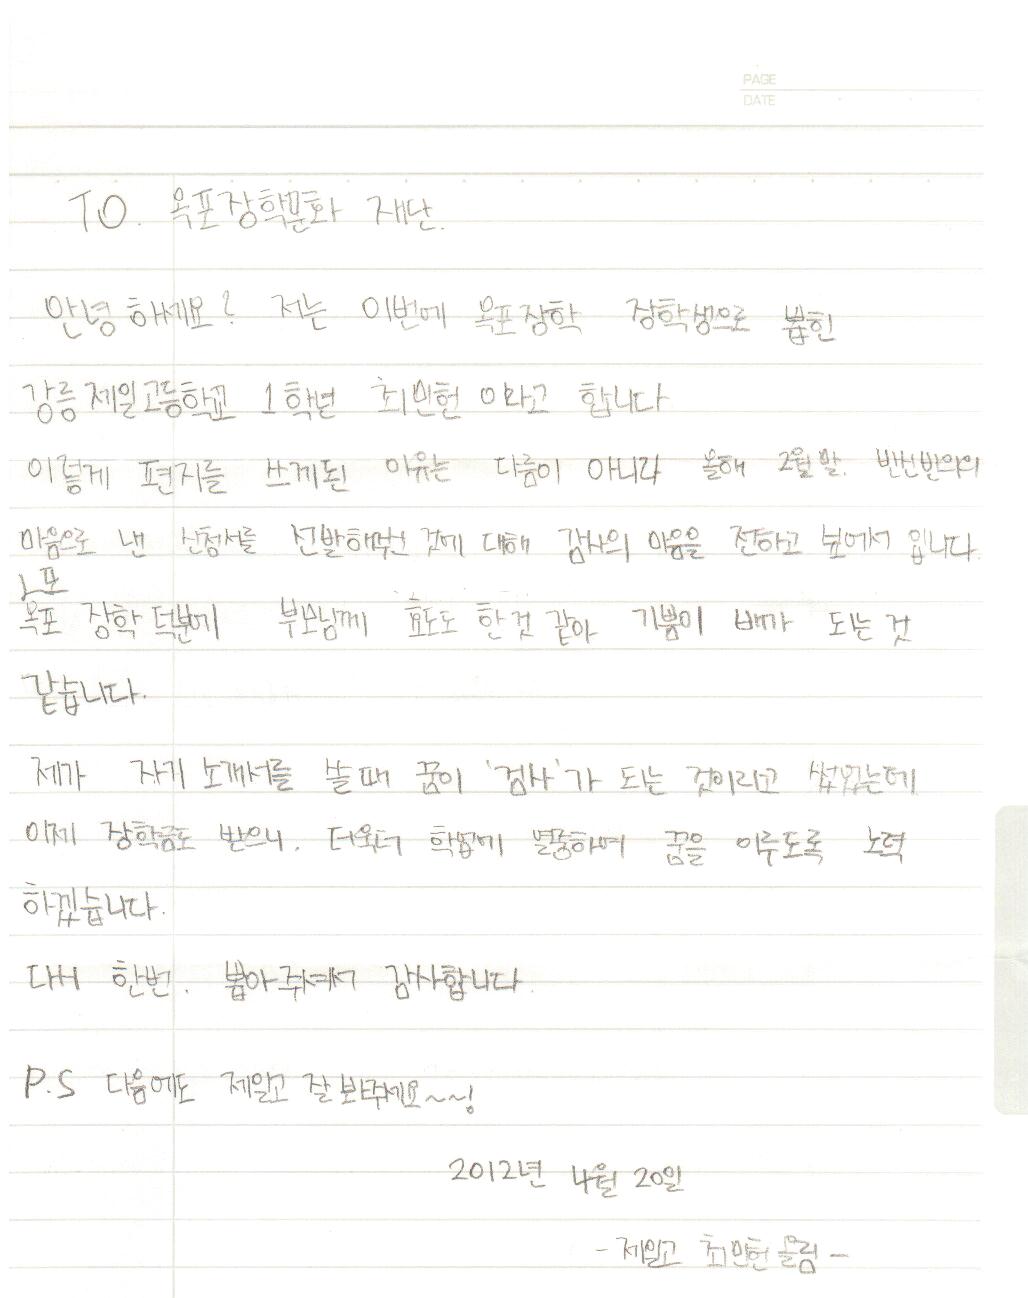 PAGE
DATE
TO. 옥포장학문화 재단.
안녕하세요? 저는 이번에 옥포장학 장학생으로 뽑힌
강릉제일고등학교 1학년 최민헌 이라고 합니다
이렇게 편지를 쓰게된 이유는 다름이 아니라 올해 2월 말. 반신반의의
마음으로 낸 신청서를 선발해주신 것에 대해 감사의 마음을 전하고 싶어서 입니다.
옥포 장학 덕분에 부모님께 효도도 한것 같아 기쁨이 배가 되는 것
같습니다.
제가 자기 소개서를 쓸 때 꿈이 '검사'가 되는 것이라고 썼었는데
이제 장학금도 받으니. 더욱더 학업에 열중하여 꿈을 이루도록 노력
하겠습니다.
다시 한번. 뽑아주셔서 감사합니다.
P.S 다음에도 제일고 잘 봐주세요~~!
2012년 4월 20일
- 제일고 최민헌 올림 -